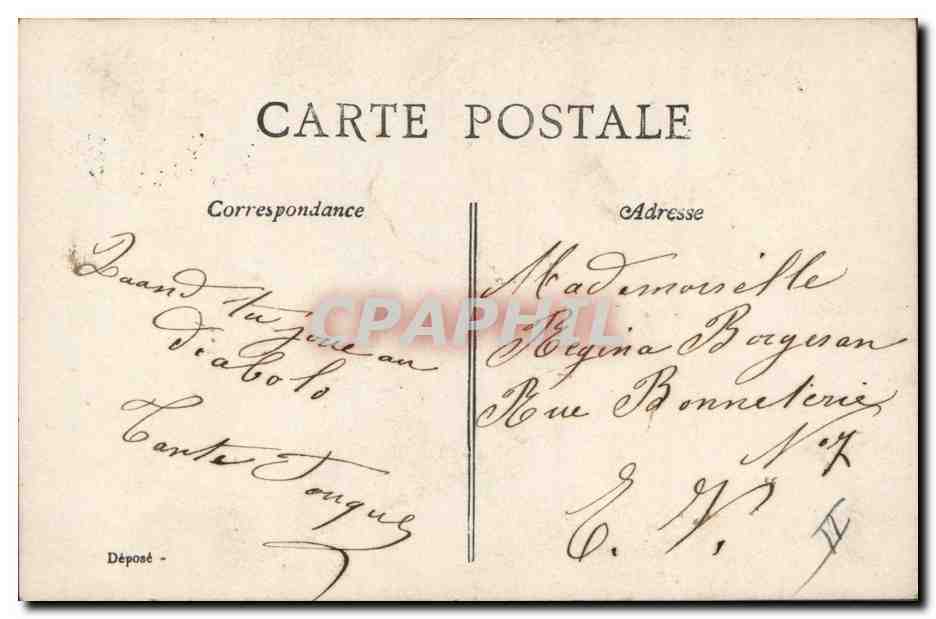 CARTE POSTALE
Correspondance
Adresse
Quand tu joue au
diabolo
Tante
Déposé -
Mademoiselle
Regina Borgesan
Rue Bonneterie
N° 7
E. V.
II
CPAPHIL